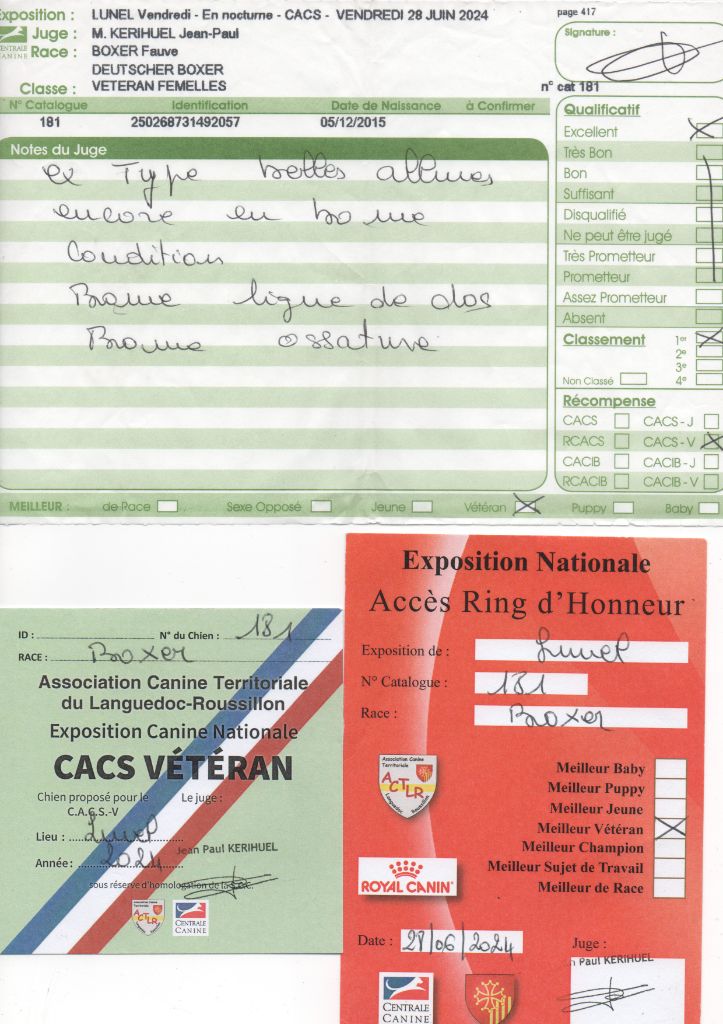 Exposition : LUNEL Vendredi - En nocturne - CACS - VENDREDI 28 JUIN 2024
page 417
CENTRALE CANINE
Juge : M. KERIHUEL Jean-Paul
Signature :
Race : BOXER Fauve
DEUTSCHER BOXER
Classe : VETERAN FEMELLES
n° cat 181
N° Catalogue Identification Date de Naissance à Confirmer
181 250268731492057 05/12/2015
Notes du Juge
ex Type belles allures
encore en bonne
Condition
Bonne ligne de dos
Bonne ossature
Qualificatif
Excellent
Très Bon
Bon
Suffisant
Disqualifié
Ne peut être jugé
Très Prometteur
Prometteur
Assez Prometteur
Absent
Classement 1er
2e
3e
Non Classé 4e
Récompense
CACS CACS - J
RCACS CACS - V
CACIB CACIB - J
RCACIB CACIB - V
MEILLEUR : de Race Sexe Opposé Jeune Vétéran Puppy Baby
ID : N° du Chien : 181
RACE : Boxer
Association Canine Territoriale
du Languedoc-Roussillon
Exposition Canine Nationale
CACS VÉTÉRAN
Chien proposé pour le Le juge :
C.A.C.S.-V
Lieu : Lunel
Jean Paul KERIHUEL
Année : 2024
sous réserve d'homologation de la S.C.C.
ACTLR
CENTRALE
CANINE
Exposition Nationale
Accès Ring d'Honneur
Exposition de : Lunel
N° Catalogue : 181
Race : Boxer
Association Canine
Territoriale
ACTLR
Languedoc Roussillon
Meilleur Baby
Meilleur Puppy
Meilleur Jeune
Meilleur Vétéran
Meilleur Champion
Meilleur Sujet de Travail
Meilleur de Race
ROYAL CANIN
Date : 28/06/2024
Juge :
n Paul KERIHUEL
CENTRALE
CANINE